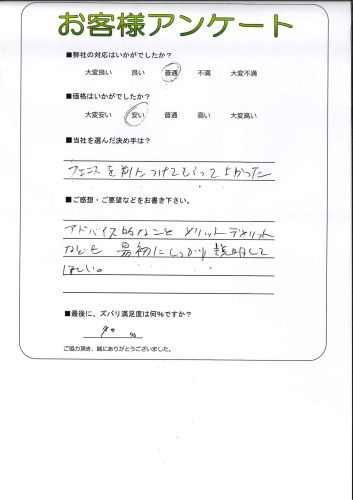 お客様アンケート
■弊社の対応はいかがでしたか？
大変良い 良い 普通 不満 大変不満
■価格はいかがでしたか？
大変安い 安い 普通 高い 大変高い
■当社を選んだ決め手は？
フェンスを つけてもらってよかった
■ご感想・ご要望などをお書き下さい。
アドバイス的なこと メリット デメリット
なども 最初にしっかり 説明して
ほしい。
■最後に、ズバリ満足度は何%ですか？
90 %
ご協力頂き、誠にありがとうございました。